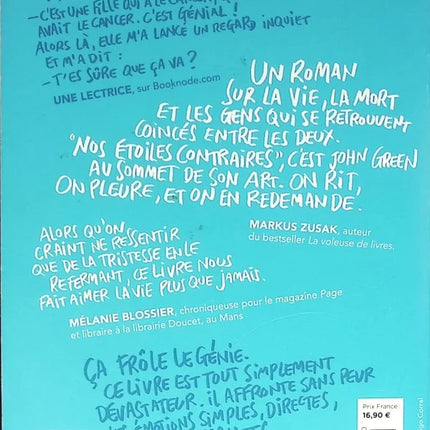 – C'EST UNE FILLE QUI A LE CANCER,
AVAIT LE CANCER. C'EST GÉNIAL !
ALORS LÀ, ELLE M'A LANCÉ UN REGARD INQUIET
ET M'A DIT :
– T'ES SÛRE QUE ÇA VA ?
UNE LECTRICE, sur Booknode.com
UN ROMAN
SUR LA VIE, LA MORT
ET LES GENS QUI SE RETROUVENT
COINCÉS ENTRE LES DEUX.
"NOS ÉTOILES CONTRAIRES", C'EST JOHN GREEN
AU SOMMET DE SON ART. ON RIT,
ON PLEURE, ET ON EN REDEMANDE.
MARKUS ZUSAK, auteur
du bestseller La voleuse de livres.
ALORS QU'ON
CRAINT NE RESSENTIR
QUE DE LA TRISTESSE EN LE
REFERMANT, CE LIVRE NOUS
FAIT AIMER LA VIE PLUS QUE JAMAIS.
MÉLANIE BLOSSIER, chroniqueuse pour le magazine Page
et libraire à la librairie Doucet, au Mans
ÇA FRÔLE LE GÉNIE.
CE LIVRE EST TOUT SIMPLEMENT
DÉVASTATEUR. IL AFFRONTE SANS PEUR
ÉMOTIONS SIMPLES, DIRECTES,
Prix France
16,90 €